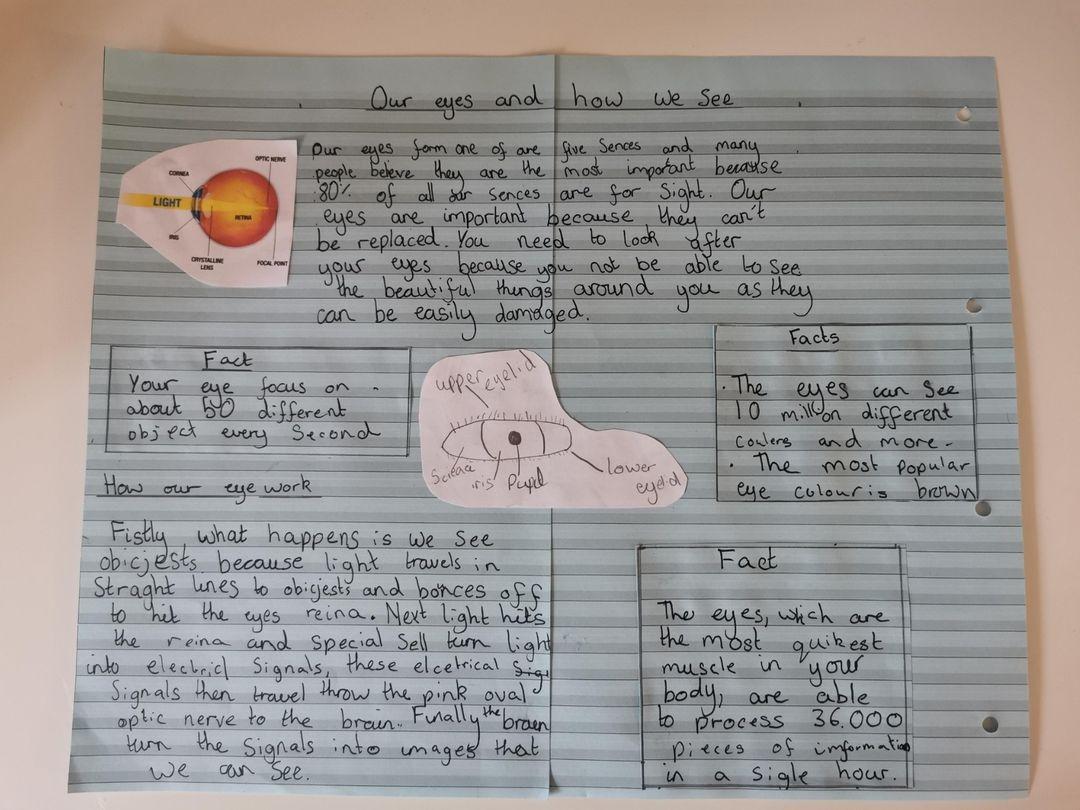 Our eyes and how we see
OPTIC NERVE
CORNEA
LIGHT
RETINA
IRIS
CRYSTALLINE
LENS
FOCAL POINT
Our eyes form one of are five Sences and many
people believe they are the most important because
80% of all our sences are for Sight. Our
eyes are important because they can't
be replaced. You need to look after
your eyes because you not be able to see
the beautiful things around you as they
can be easily damaged.
Fact
Your eye focus on
about 50 different
object every Second
upper eyelid
iris Pupil
lower
eyelid
Facts
· The eyes can see
10 million different
coulers and more.
· The most popular
eye colour is brown
How our eye work
Fistly what happens is we see
obicjests because light travels in
Straght lines to obicjests and bonces off
to hit the eyes reina. Next light hits
the reina and special Sell turn light
into electricl Signals, these elcetrical Sigl
Signals then travel throw the pink oval
optic nerve to the brain. Finally the braen
turn the Signals into images that
we can see.
Fact
The eyes, wich are
the most quikest
muscle in your
body, are able
to process 36.000
pieces of imformation
in a sigle hour.